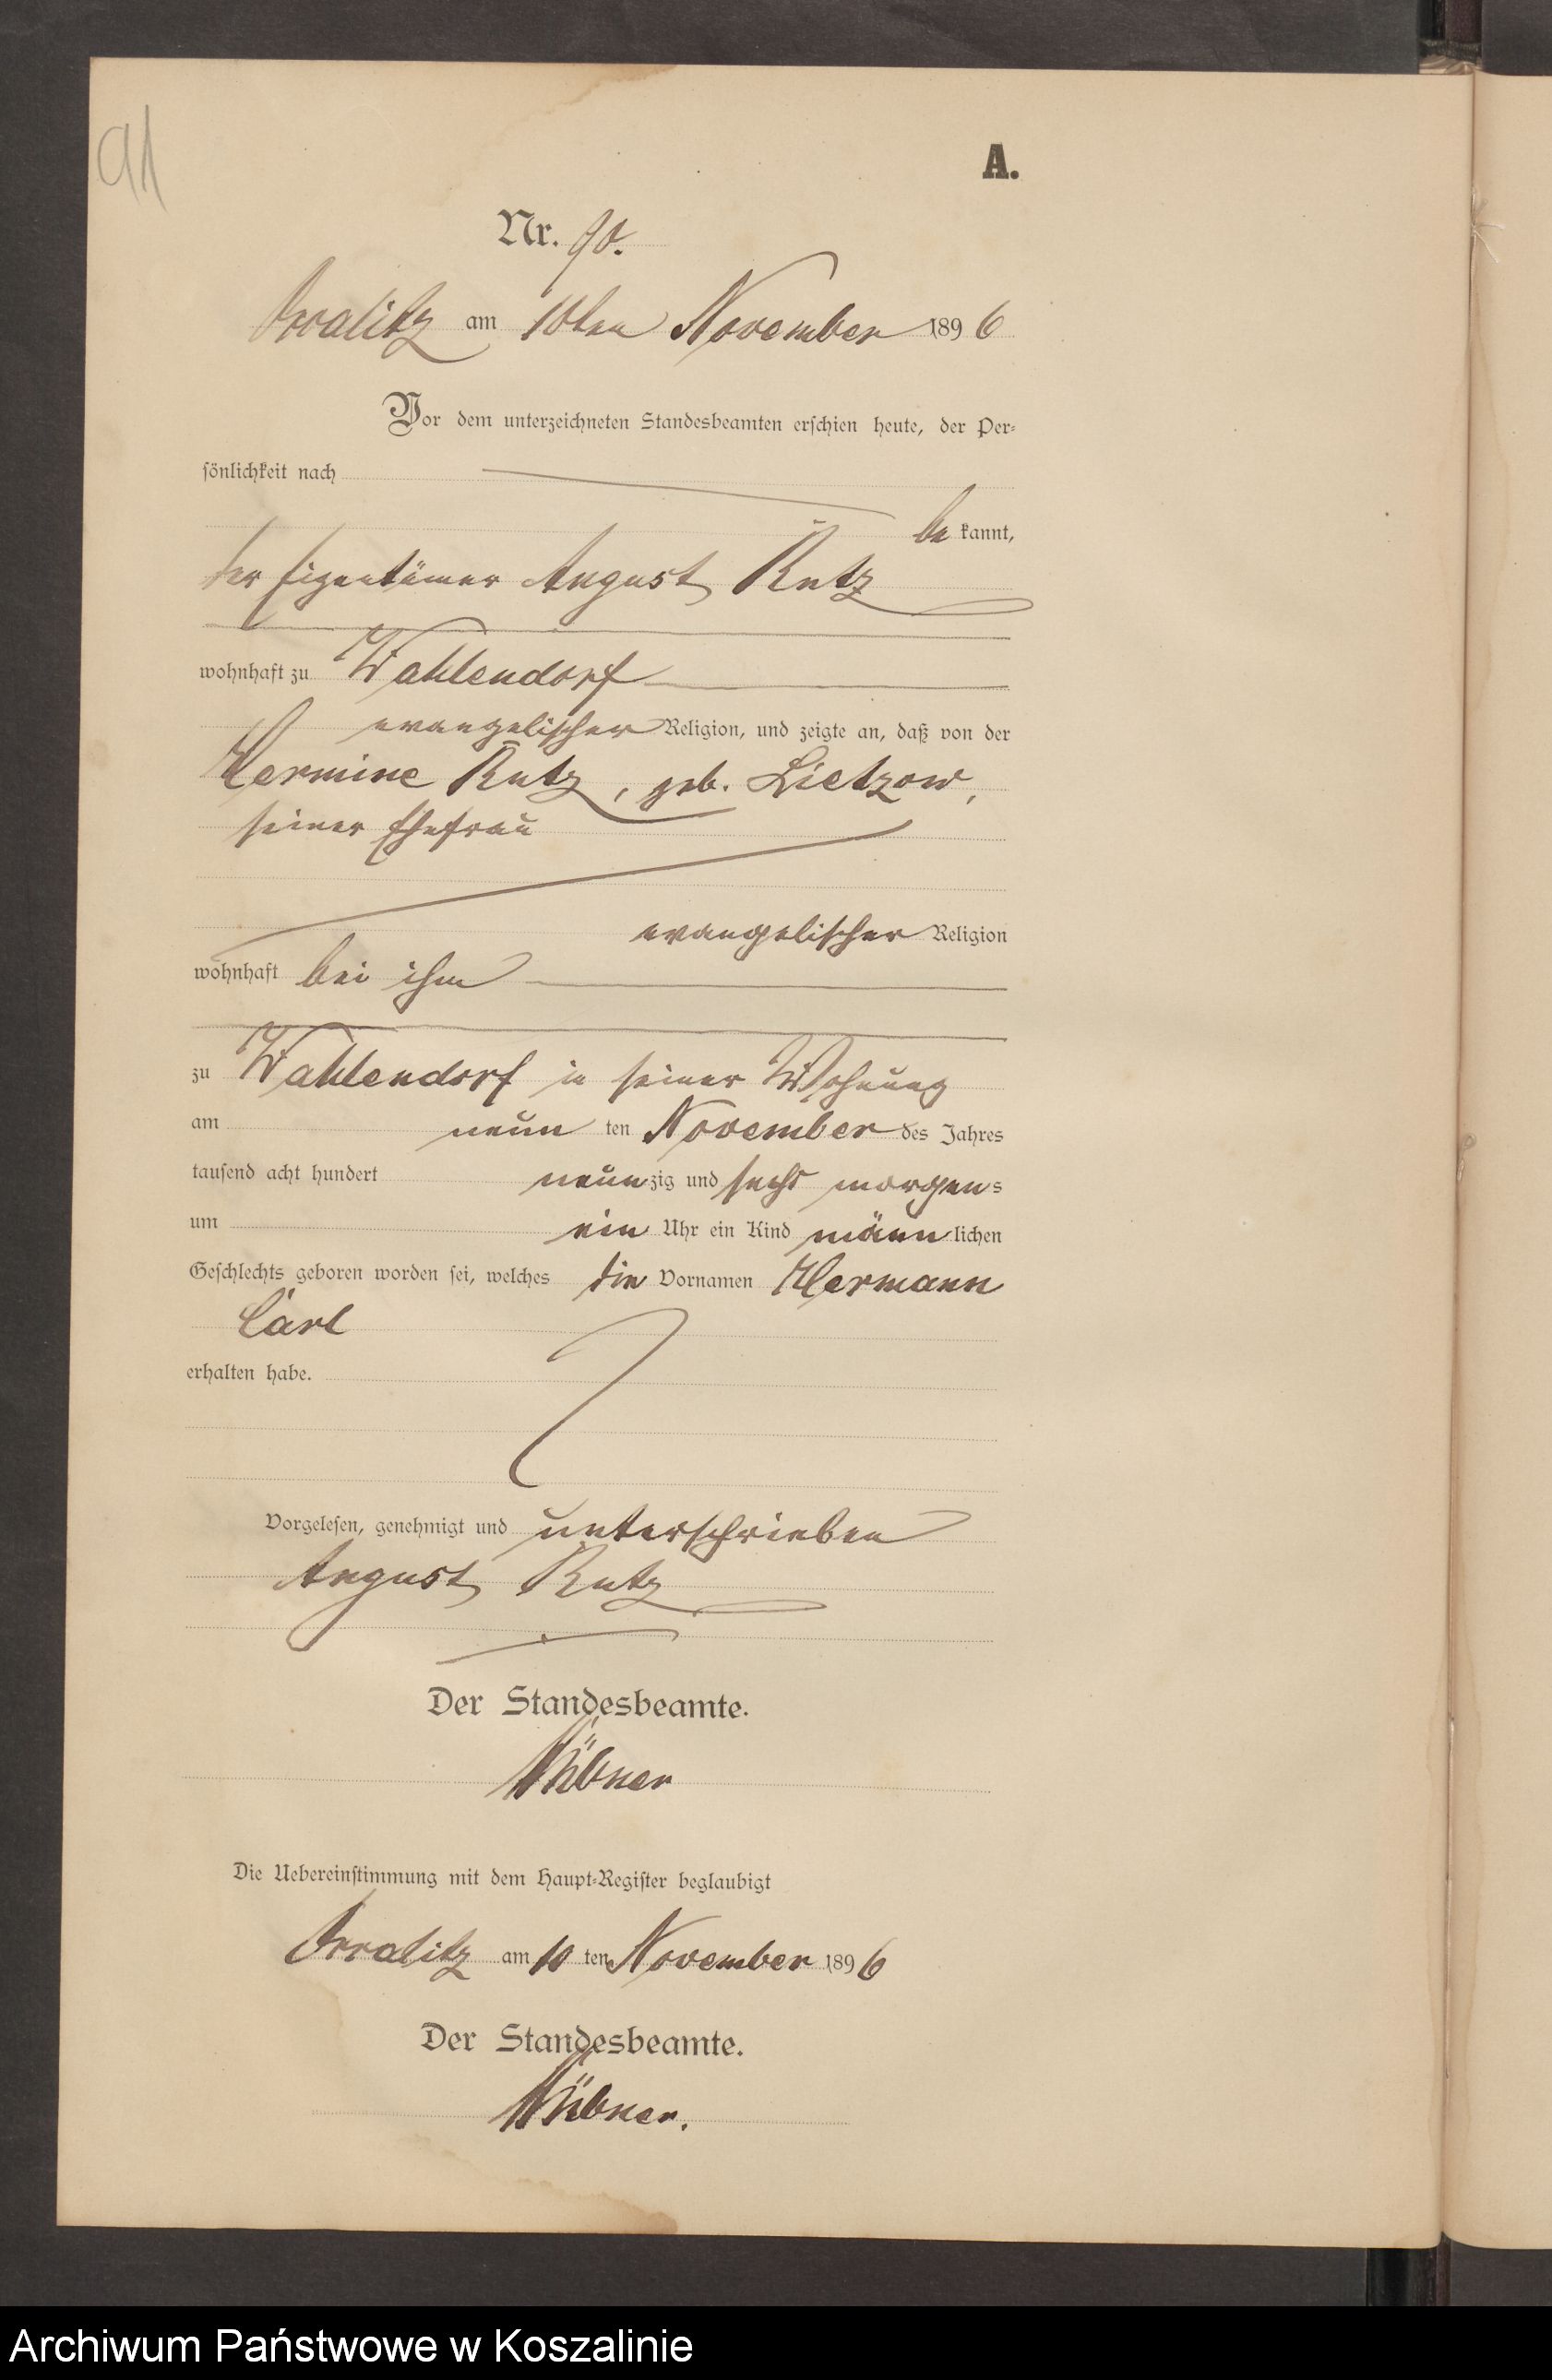 91
A.
Nr. 90.
Wralitz am 10ten November 1896
Vor dem unterzeichneten Standesbeamten erschien heute, der Per-
sönlichkeit nach
be kannt,
der Eigentümer August Rutz
wohnhaft zu Wahlendorf
evangelischer Religion, und zeigte an, daß von der
Hermine Rutz, geb. Lietzow,
seiner Ehefrau
evangelischer Religion
wohnhaft bei ihm
zu Wahlendorf in seiner Wohnung
am neun ten November des Jahres
tausend acht hundert neunzig und sechs morgens
um ein Uhr ein Kind männlichen
Geschlechts geboren worden sei, welches die Vornamen Hermann
Carl
erhalten habe.
Vorgelesen, genehmigt und unterschrieben
August Rutz
Der Standesbeamte.
Hübner
Die Uebereinstimmung mit dem Haupt-Register beglaubigt
am 10 ten November 1896
Der Standesbeamte.
Hübner.
Archiwum Państwowe w Koszalinie